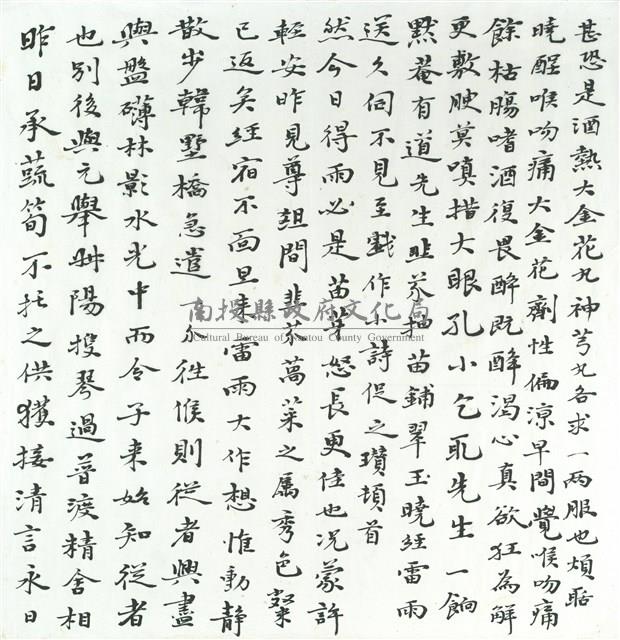 昨日承蔬筍不托之供獲接清言永日
也別後與元舉艸陽搜琴過普渡精舍相
與盤礴林影水光中而令子来始知從者
散步韓墅橋急遣人往候則從者興盡
已返矣經宿不面旦来雷雨大作想惟動靜
輕安昨見尊俎間韭芥萵菜之屬秀色粲
然今日得雨必是苗芽怒長更佳也況蒙許
送久伺不見至戲作小詩促之瓚頓首
默菴有道先生韭芥抽苗鋪翠玉曉經雷雨
更敷腴莫嗔措大眼孔小乞取先生一餉
餘枯腸嗜酒復畏醉既醉渴心真欲狂為解
曉酲喉吻痛大金花劑性偏凉早間覺喉吻痛
甚恐是酒熱大金花丸神芎丸各求一两服也煩聒
南投縣政府文化局
Cultural Bureau of Nantou County Government